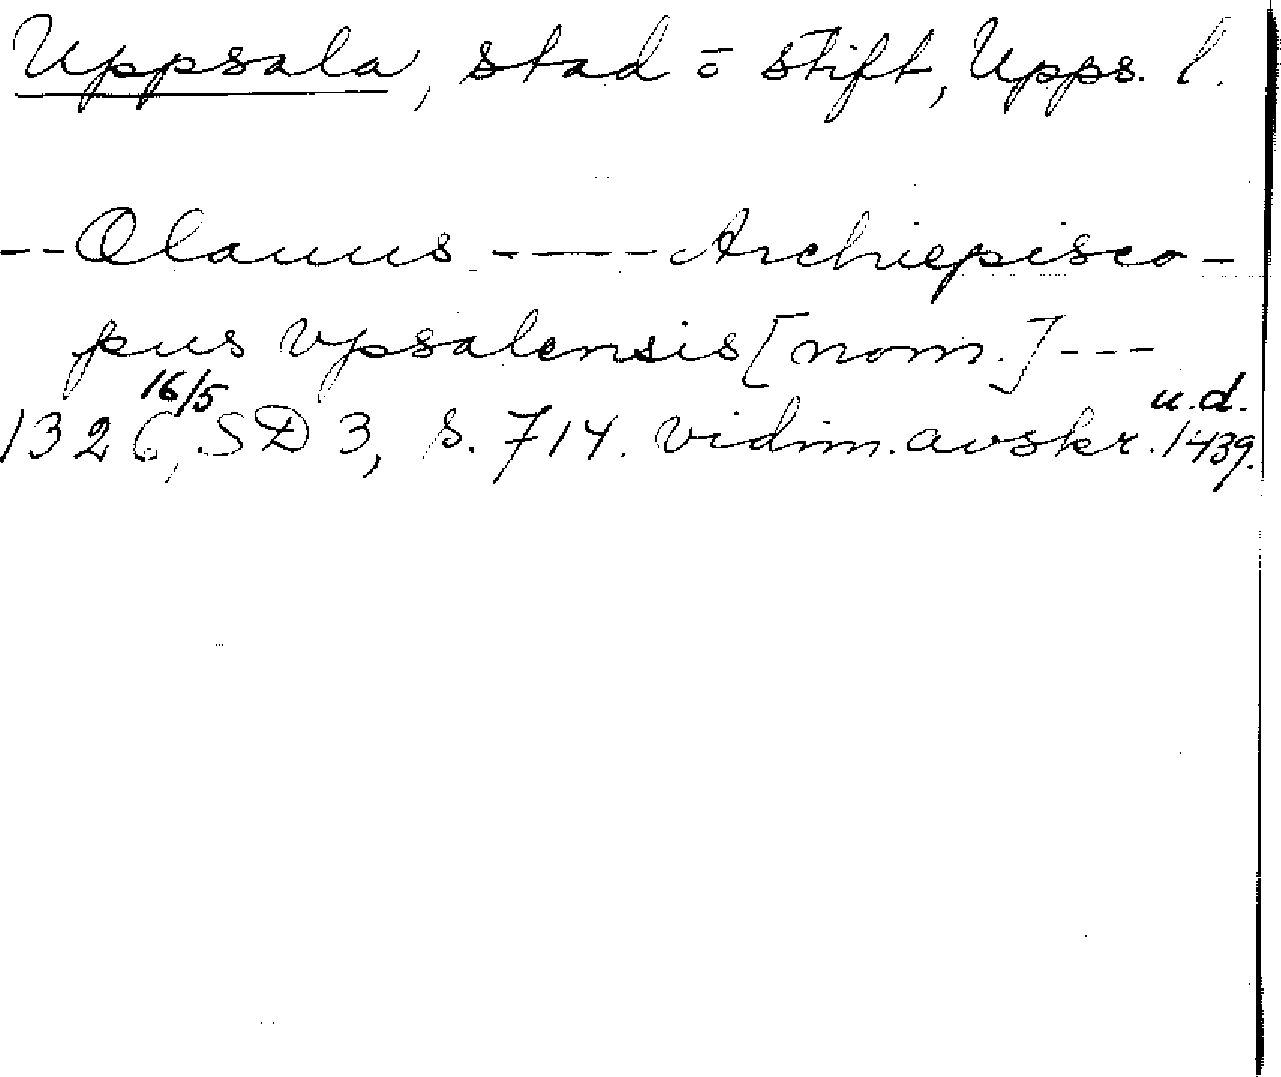 Uppsala, stad o stift, Upps. l.
-- Olauus ---- Archiepisco-
pus vpsalensis [nom.] ---
16/5 u.d.
1326, SD 3, s. 714. vidim. avskr. 1439.